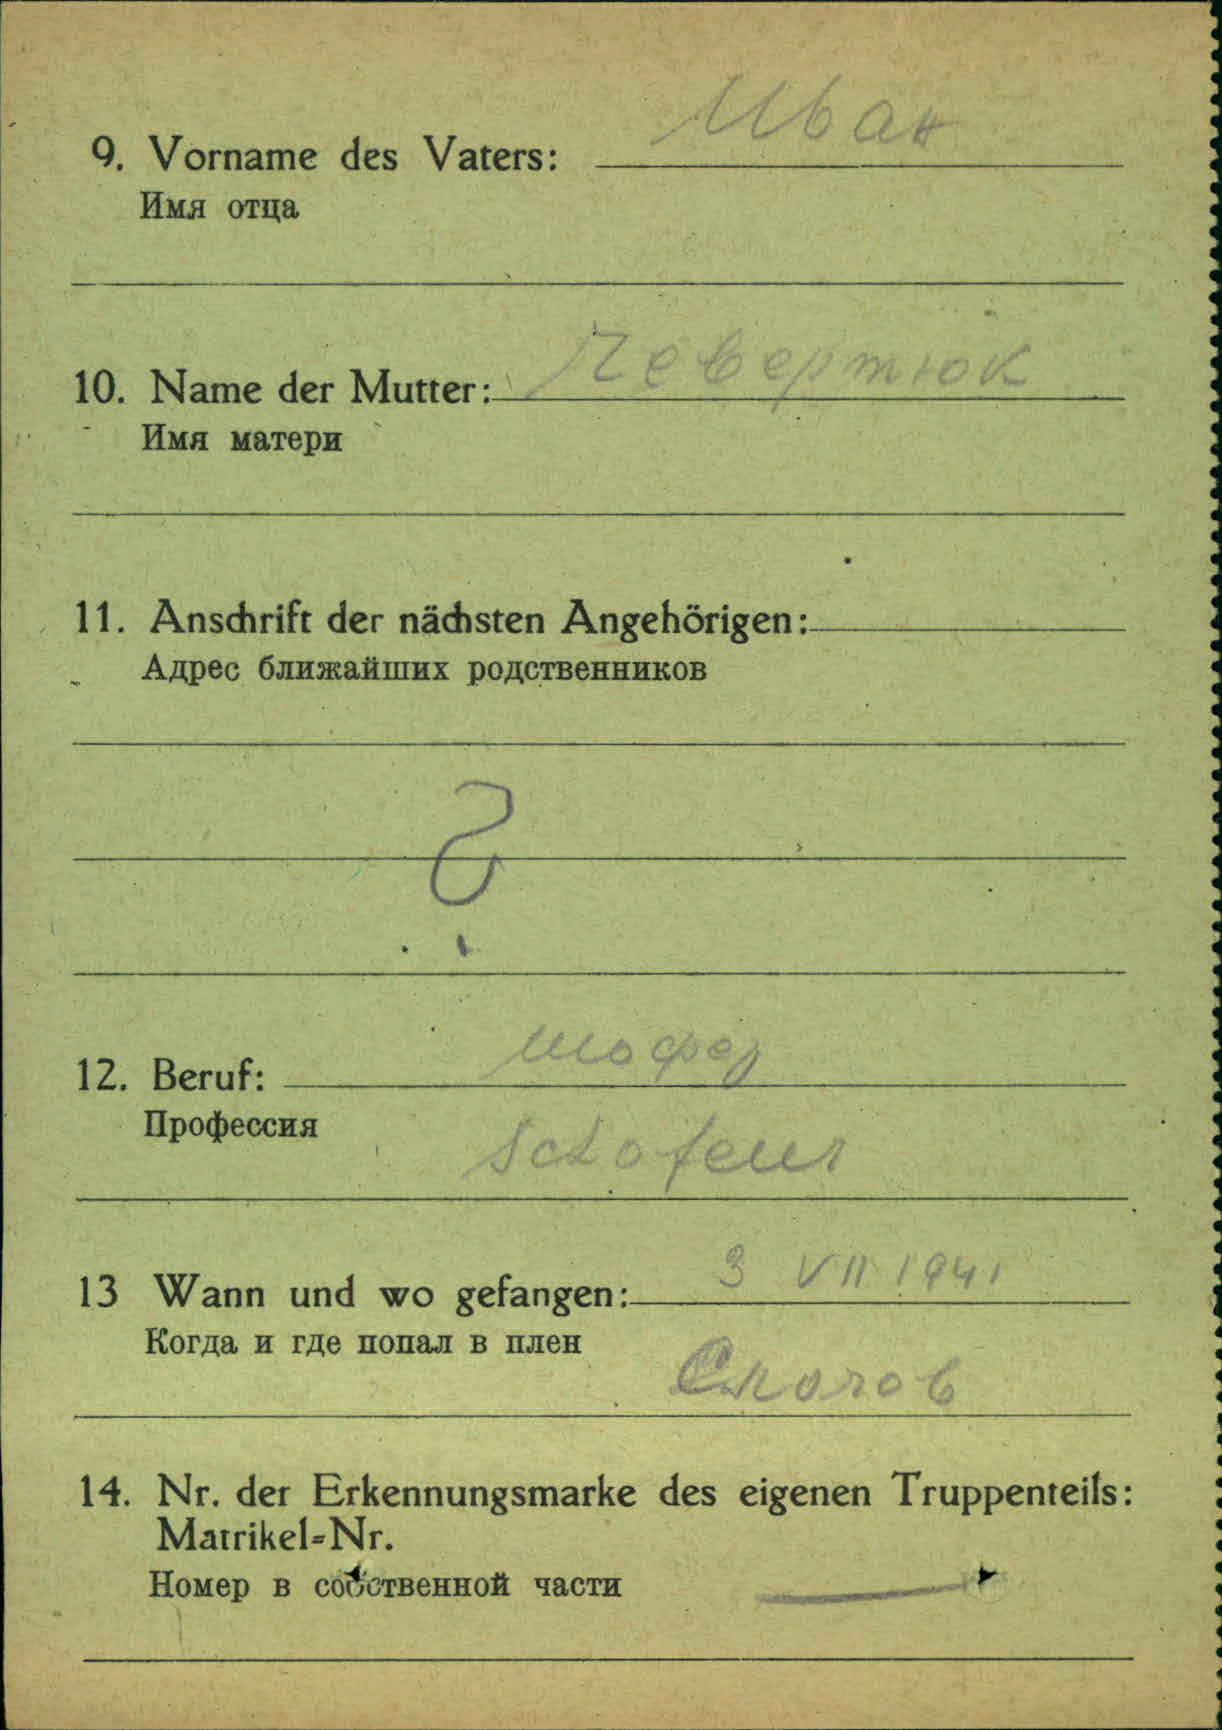 9. Vorname des Vaters: Иван
Имя отца
10. Name der Mutter: Чевертюк
Имя матери
11. Anschrift der nächsten Angehörigen:
Адрес ближайших родственников
?
12. Beruf: шофер
Профессия
Schofeur
13 Wann und wo gefangen: 3 VII 1941
Когда и где попал в плен
14. Nr. der Erkennungsmarke des eigenen Truppenteils:
Matrikel-Nr.
Номер в собственной части